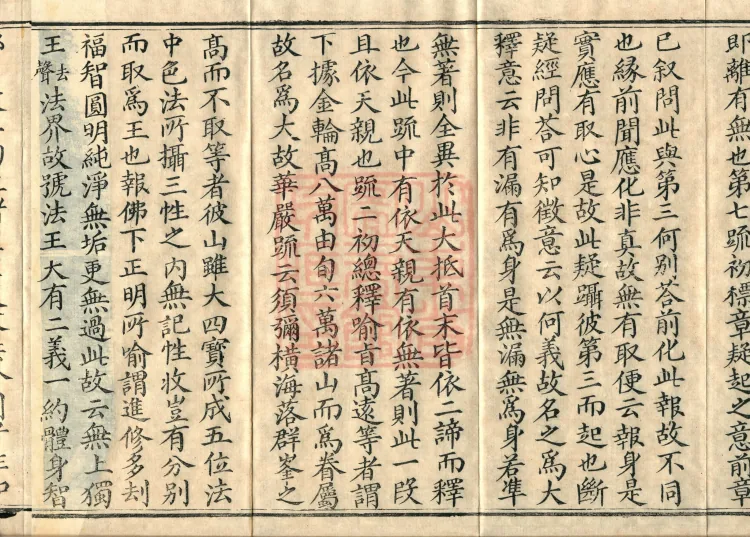 即離有無也第七疏初標章疑起之意前章
已叙問此與第三何別荅前化此報故不同
也緣前聞應化非真故無有取便云報身是
實應有取心是故此疑躡彼第三而起也斷
疑經問荅可知徵意云以何義故名之爲大
釋意云非有漏有爲身是無漏無爲身若準
無著則全異於此大抵首末皆依二諦而釋
也今此疏中有依天親有依無著則此一段
且依天親也疏二初總釋喻旨高遠等者謂
下據金輪髙八萬由旬六萬諸山而爲眷屬
故名爲大故華嚴疏云須彌橫海落群峯之
髙而不取等者彼山雖大四寶所成五位法
中色法所攝三性之內無記性收豈有分別
而取爲王也報佛下正明所喻謂進修多刼
福智圓明純淨無垢更無過此故云無上獨
王去聲法界故號法王大有二義一約體身智